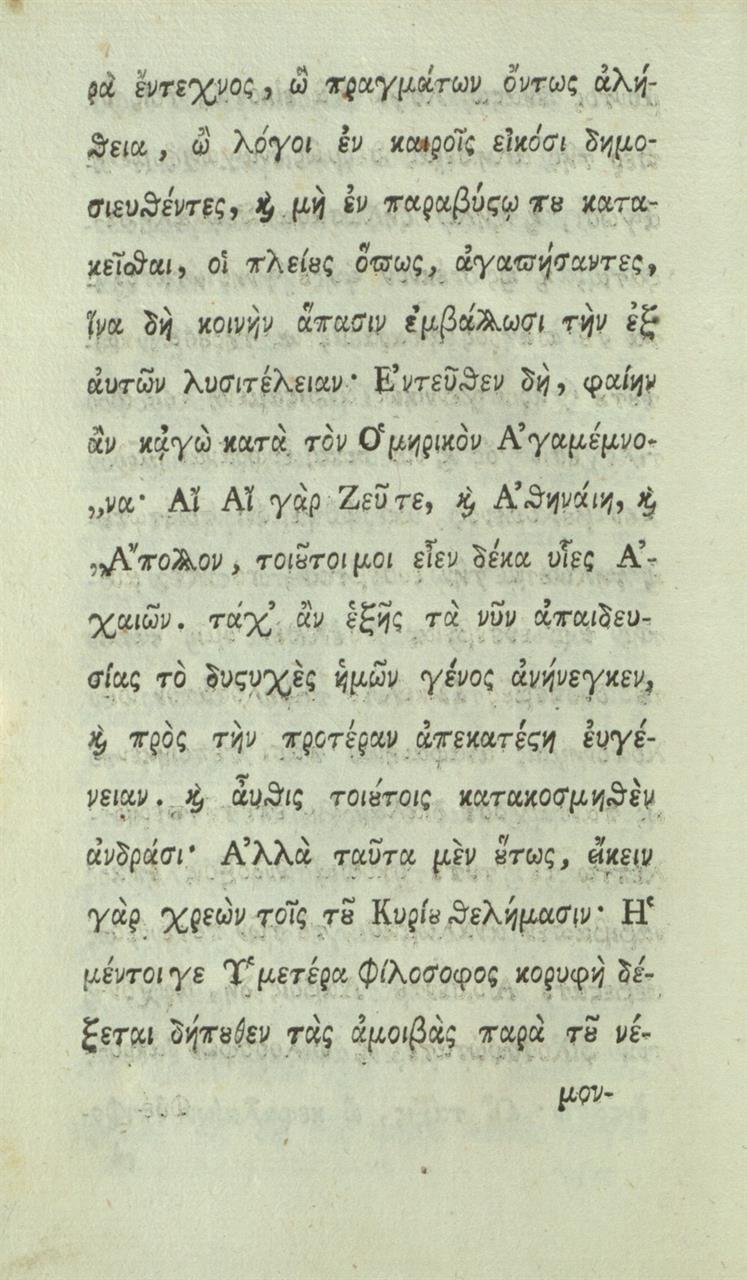 ρὰ ἔντεχνος, ὢ πραγμάτων ὄντως ἀλή-
θεια, ὢ λόγοι ἐν καιροῖς εἰκόσι δημο-
σιευθέντες, ϗ μὴ ἐν παραβύϛῳ πȣ κατα-
κεῖσθαι, οἱ πλείȣς ὅπως, ἀγαπήσαντες,
ἵνα δὴ κοινὴν ἅπασιν ἐμβάλλωσι τὴν ἐξ
ἀυτῶν λυσιτέλειαν· Ε᾿ντεῦθεν δὴ, φαίην
ἂν κᾀγὼ κατὰ τὸν Ο῾μηρικὸν Α᾿γαμέμνο-
„να· Αἲ Αἲ γὰρ Ζεῦ τε, ϗ Α᾿θηνάιη, ϗ
„Α῎πολλον, τοιȣ͂τοι μοι εἶεν δέκα υἷες Α᾿-
χαιῶν. τάχ᾿ ἂν ἑξῆς τὰ νῦν ἀπαιδευ-
σίας τὸ δυϛυχὲς ἡμῶν γένος ἀνήνεγκεν,
ϗ πρὸς τὴν προτέραν ἀπεκατέϛη ἐυγέ-
νειαν. ϗ ἆυθις τοιȣ́τοις κατακοσμηθὲν
ἀνδράσι· Α᾿λλὰ ταῦτα μὲν ȣ῞τως, εἴκειν
γὰρ χρεὼν τοῖς τȣ͂ Κυρίȣ θελήμασιν· Η῾
μέντοι γε Υ῾μετέρα Φίλοσοφος κορυφὴ δέ-
ξεται δήπȣθεν τὰς ἀμοιβὰς παρὰ τȣ͂ νέ-
μον-